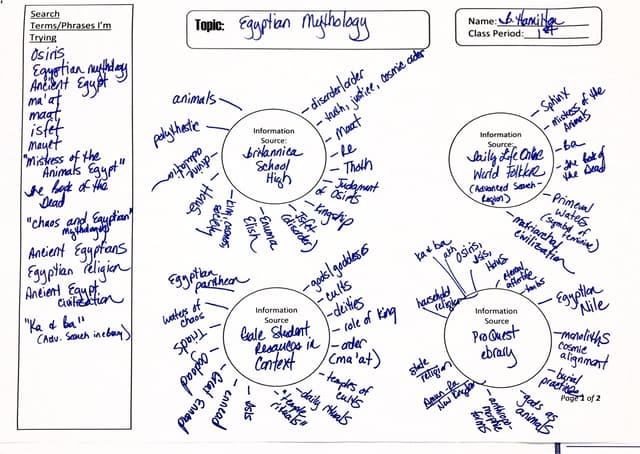 Search
Terms/Phrases I'm
Trying
Osiris
Egyptian mythology
Ancient Egypt
ma'at
maat
isfet
mayet
"Mistress of the
Animals Egypt"
the Book of the
Dead
"chaos and Egyptian"
mythology
Ancient Egyptians
Egyptian religion
Ancient Egypt
civilization
"Ka & ba"
(Adv. Search in ebrary)
Topic: Egyptian Mythology
Name: B. Hamilton
Class Period: 1st
animals
polytheistic
divine
Horus
Enuma
Elish
isfet
(disorder)
Kingship
Judgment
of Osiris
Thoth
Re
Maat
truth, justice, cosmic order
disorder/order
Information
Source:
britannica
School
High
Sphinx
Mistress of the
Animals
Ba
the Book of
the Dead
Primeval
waters
(symbol of
feminine)
matriarchal
civilization
Information
Source:
Daily Life Online
World Folklore
(Advanced Search-
Region)
Egyptian
pantheon
waters of
chaos
Ogdoad
Great Ennead
ennead
isis
"temple
rituals"
daily
rituals
temples of
cults
order
(ma'at)
role of King
deities
cults
gods/goddesses
Information
Source
Gale Student
Resources in
Context
household
religion
Ka & ba
Osiris,
Isis,
Horus
eternal
afterlife
tombs
Egyptian
Nile
monoliths
cosmic
alignment
burial
practices
gods as
animals
anthropo-
morphic
forms
Amun-Ra
New England
state
religion
Information
Source
ProQuest
ebrary
Page 1 of 2